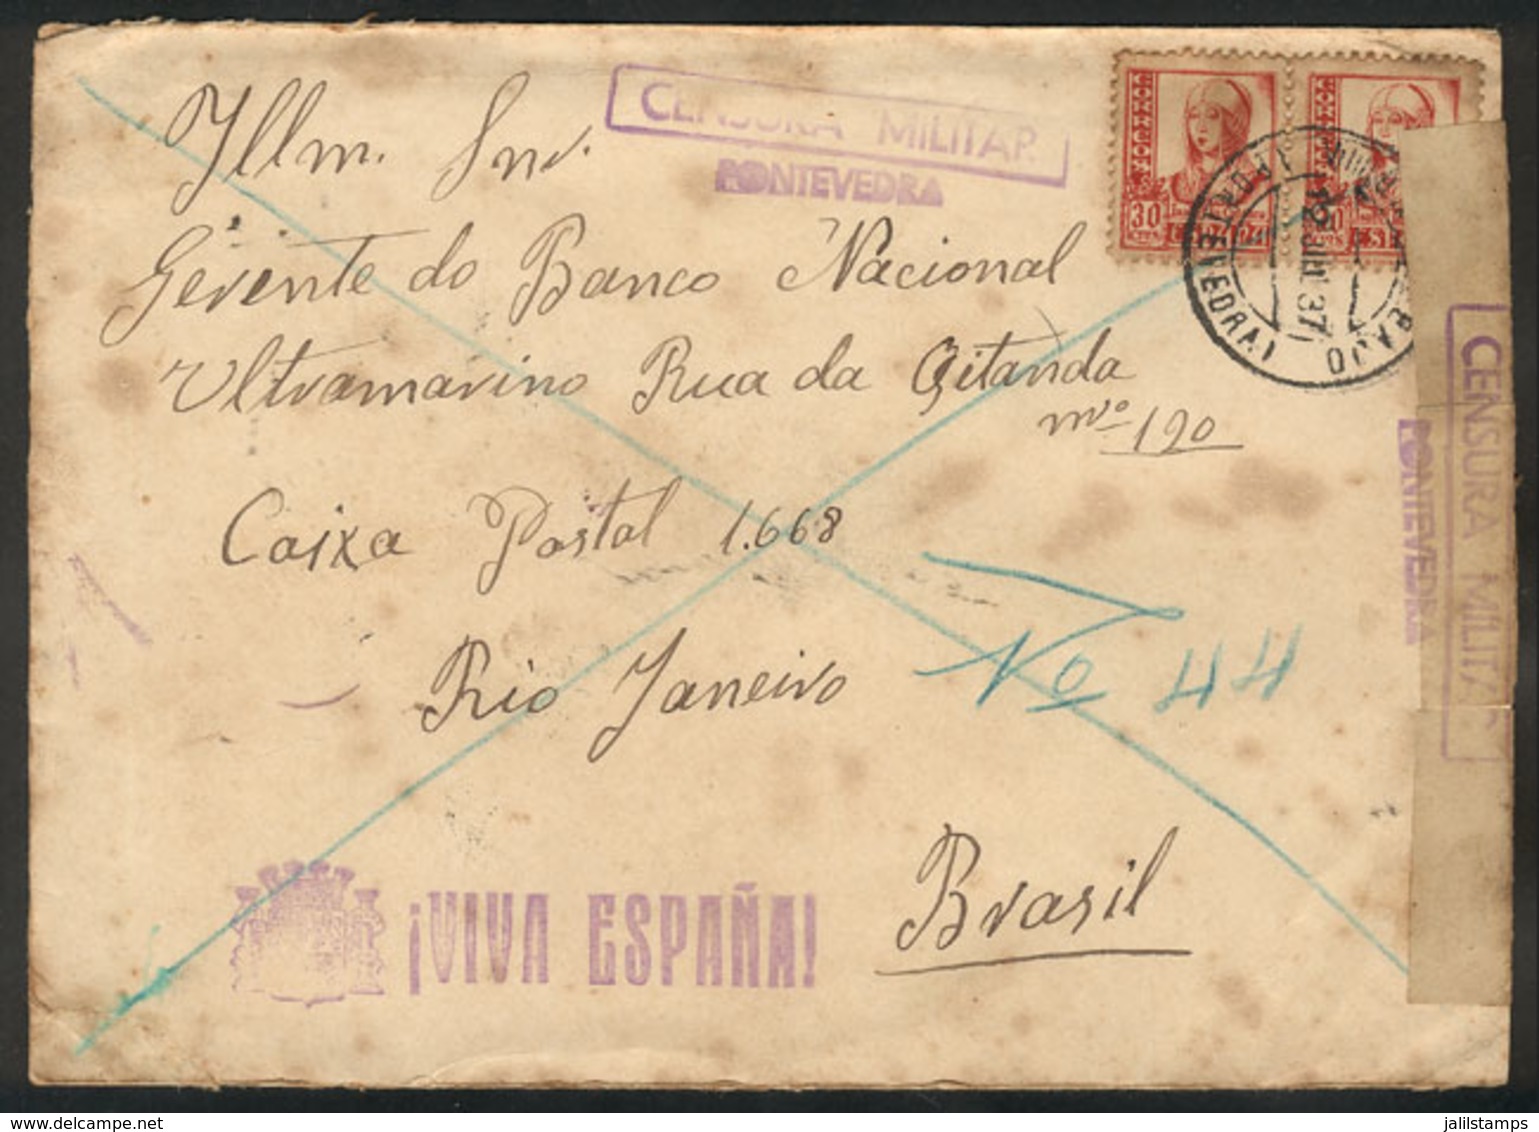 Illm. Snr.
CENSURA MILITAR
PONTEVEDRA
CORREOS
30
CTS
CORREOS
CTS
12 JUL 37
(PONTEVEDRA)
Gerente do Banco Nacional
Ultramarino Rua da Qitanda
nro 120
Caixa Postal 1.668
Rio Janeiro
No 44
Brasil
¡VIVA ESPAÑA!
CENSURA MILITAR
PONTEVEDRA
jalilstamps